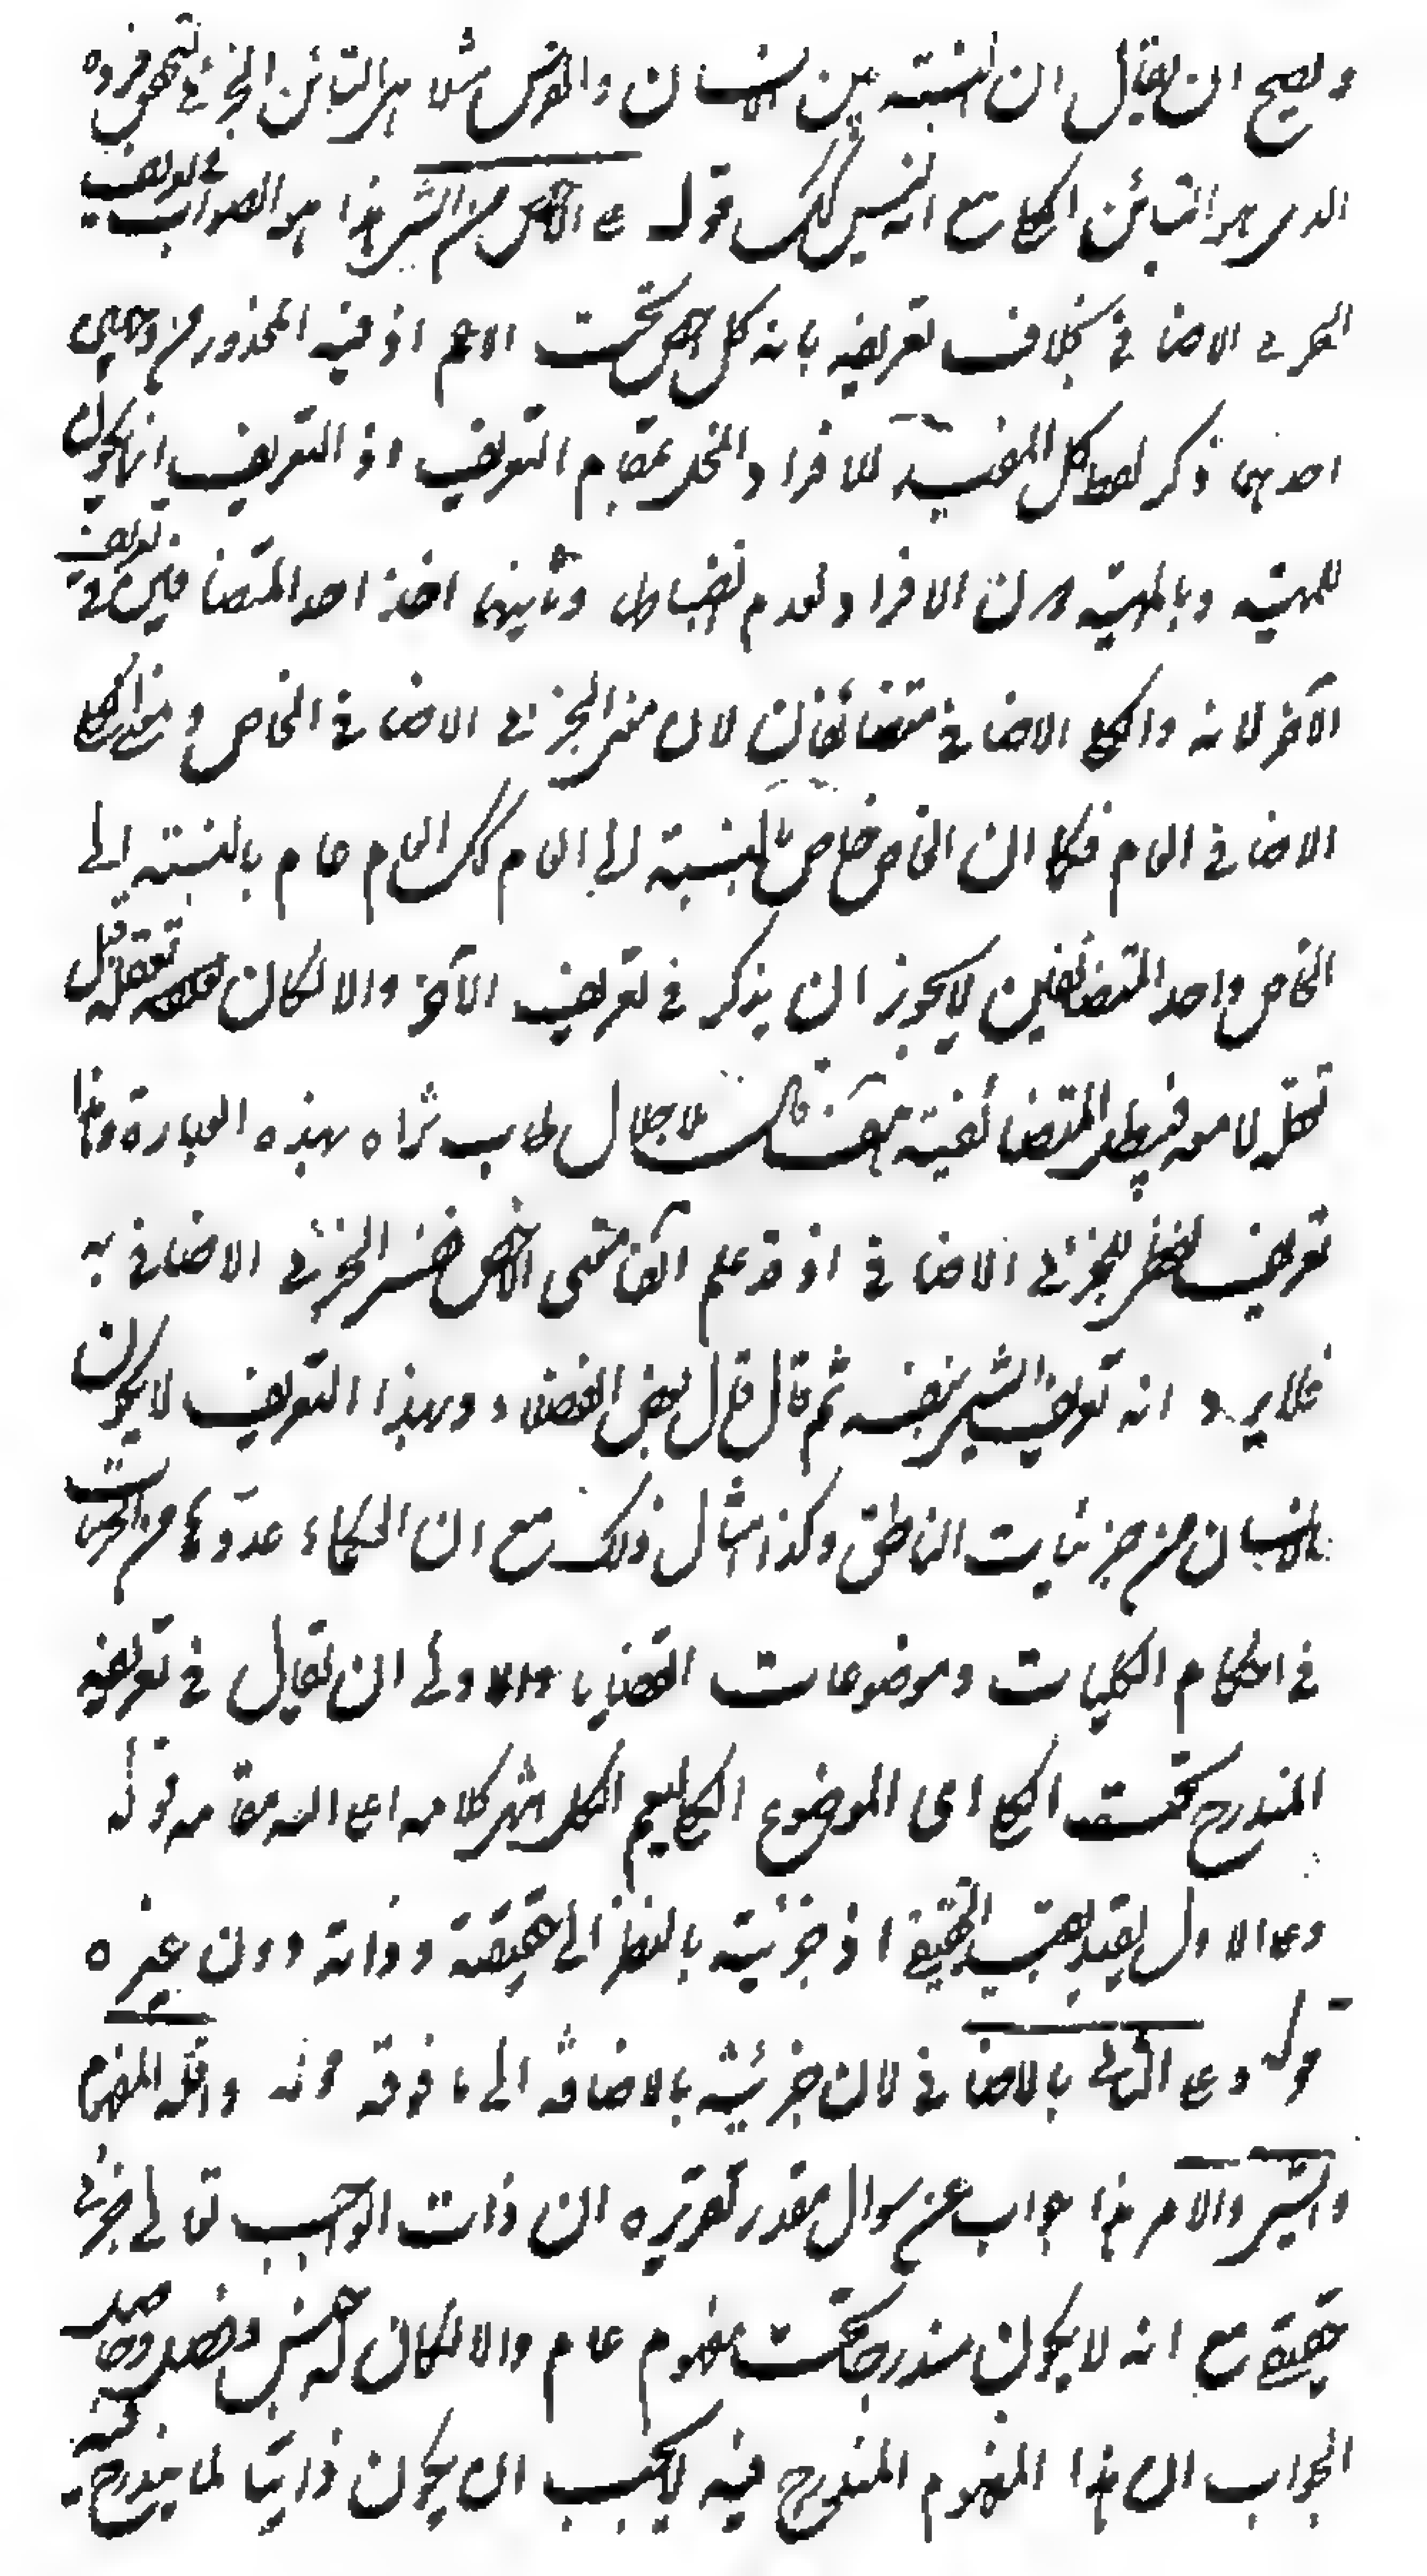 ويصح ان يقال ان النسبة بين الانسان والفرس مثلا هي التبائن الجزئي تحقق فرده
الذي هو التبائن الكلي مع انه ليس كك قوله على الاخص من الشئ هذا هو الصواب في تعريف
الجزئي الاضافي بخلاف تعريفه بانه كل اخص تحت الاعم اذ فيه المحذور من وجهين
احدهما ذكر لفظ كل المفيد للافراد المخل بمقام التعريف اذ التعريف انما يكون
للمهية وبالمهية دون الافراد لعدم انضباطها وثانيهما اخذ احد المتضائفين في تعريف
الآخر لانه والكلي الاضافي متضائفان لان معنى الجزئي الاضافي الخاص ومعنى الكلي
الاضافي العام فكما ان الخاص خاص بالنسبة الى العام كك العام عام بالنسبة الى
الخاص واحد المتضائفين لا يجوز ان يذكر في تعريف الآخر والا لكان تعقله قبل
تعقله لا معه فيبطل المتضائفية هف قال جلال طاب ثراه بهذه العبارة وهذا
تعريف لفظي للجزئي الاضافي اذ قد علم آنفا معنى الاخص ففسر الجزئي الاضافي به
فلا يرد انه تعريف الشئ بنفسه ثم قال قال بعض الفضلاء وبهذا التعريف لا يكون
الانسان من جزئيات الناطق وكذا امثال ذلك مع ان الحكماء عدوها من الجزئيات
في احكام الكليات وموضوعات القضايا والاولى ان يقال في تعريفه
المندرج تحت الكلي اي الموضوع الكلي ليعم الكل انتهى كلامه اعلى الله مقامه قوله
وعلى الاول يقيد بقيد الحقيقي اذ جزئيته بالنظر الى حقيقته وذاته دون غيره
قوله وعلى الثاني بالاضافي لان جزئيته بالاضافة الى ما فوقه قوله واما المفهوم
والشئ والامر هذا جواب عن سوال مقدر تقريره ان ذات الواجب تعالى جزئي
حقيقي مع انه لا يكون مندرجا تحت مفهوم عام والا لكان له جنس وفصل وحاصل
الجواب ان هذا المفهوم المندرج فيه لا يجب ان يكون ذاتيا لما يندرج فيه